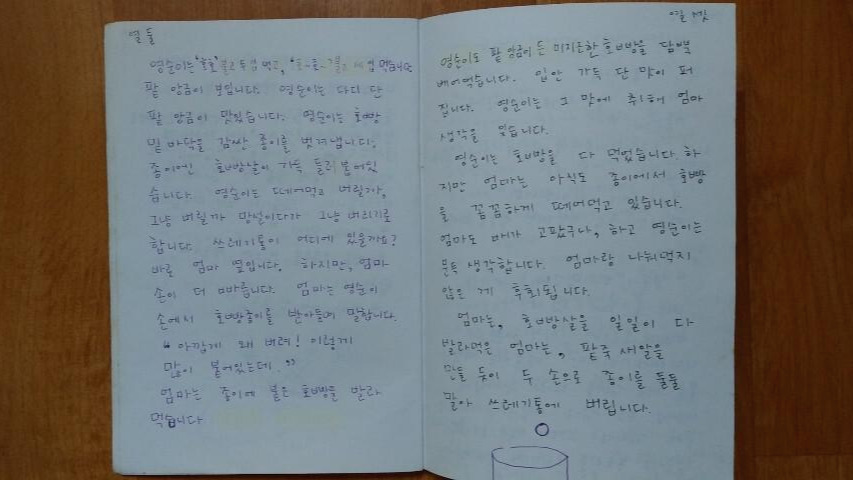 열 둘
영순이는 '호호' 불고 두 입 먹고, "호-호- 불고 세 입 먹습니다
팥 앙금이 보입니다. 영순이는 다디 단
팥 앙금이 맛있습니다. 영순이는 호빵
밑 바닥을 감싼 종이를 벗겨냅니다.
종이엔 호빵살이 가득 들러붙어있
습니다. 영순이는 떼어먹고 버릴까,
그냥 버릴까 망설이다가 그냥 버리기로
합니다. 쓰레기통이 어디에 있을까요?
바로 엄마 옆입니다. 하지만, 엄마
손이 더 빠릅니다. 엄마는 영순이
손에서 호빵종이를 받아들며 말합니다.
"아깝게 왜 버려! 이렇게
많이 붙어있는데."
엄마는 종이에 붙은 호빵을 발라
먹습니다
열 셋
영순이도 팥 앙금이 든 미지근한 호빵을 담뿍
베어먹습니다. 입안 가득 단 맛이 퍼
집니다. 영순이는 그 맛에 취해 엄마
생각을 잊습니다.
영순이는 호빵을 다 먹었습니다. 하
지만 엄마는 아직도 종이에서 호빵
을 꼼꼼하게 떼어먹고 있습니다.
엄마도 배가 고팠구나, 하고 영순이는
문득 생각합니다. 엄마랑 나눠먹지
않은 게 후회됩니다.
엄마는, 호빵살을 일일이 다
발라먹은 엄마는, 팥죽 새알을
만들 듯이 두 손으로 종이를 돌돌
말아 쓰레기통에 버립니다.